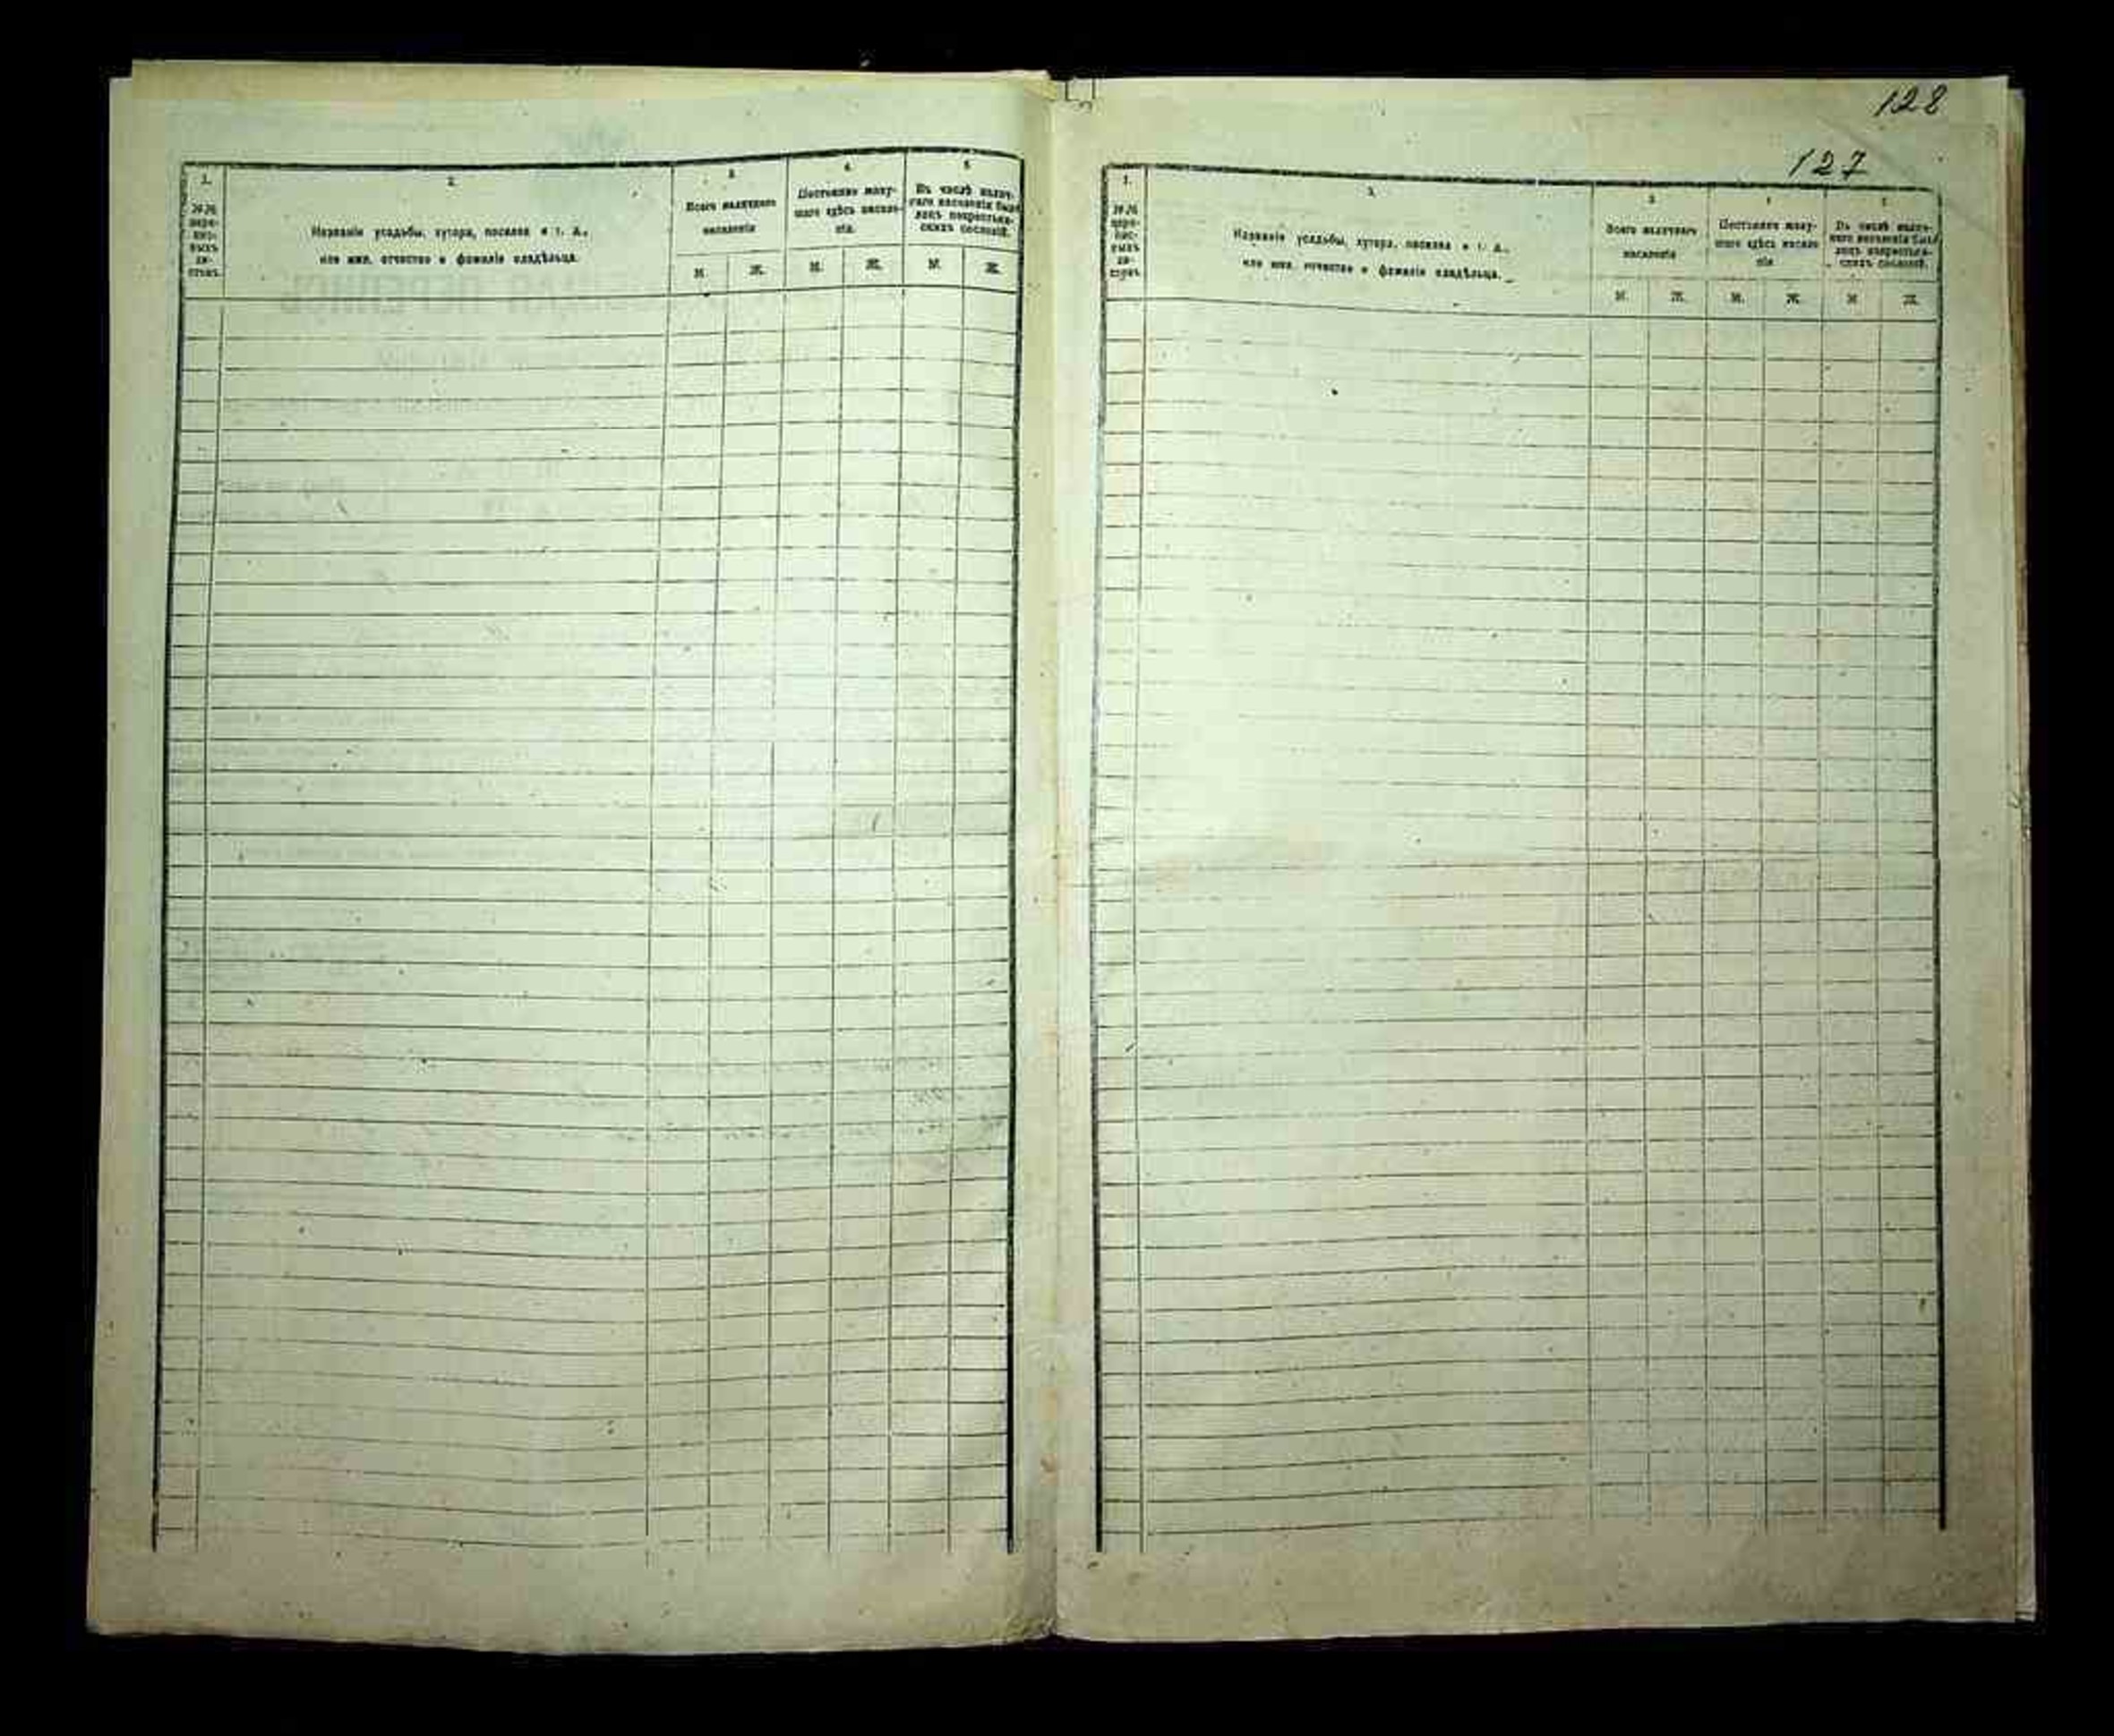 1.
№№ пере-
пис-
ныхъ
ли-
стовъ.
2.
Названіе усадьбы, хутора, поселка и т. д.,
или имя, отчество и фамилія владѣльца.
3.
Всего наличнаго
населенія
М. Ж.
4.
Постоянно живу-
щаго здѣсь населе-
нія.
М. Ж.
5.
Въ числѣ налич-
наго населенія было
лицъ некрестьян-
скихъ сословій.
М. Ж.
128
127
1.
№№
пере-
пис-
ныхъ
ли-
стовъ
2.
Названіе усадьбы, хутора, поселка и т. д.,
или имя, отчество и фамилія владѣльца.
3
Всего наличнаго
населенія
М. Ж.
4
Постоянно живу-
щаго здѣсь населе-
нія
М. Ж.
5.
Въ числѣ налич-
наго населенія было
лицъ некрестьян-
скихъ сословій.
М Ж.